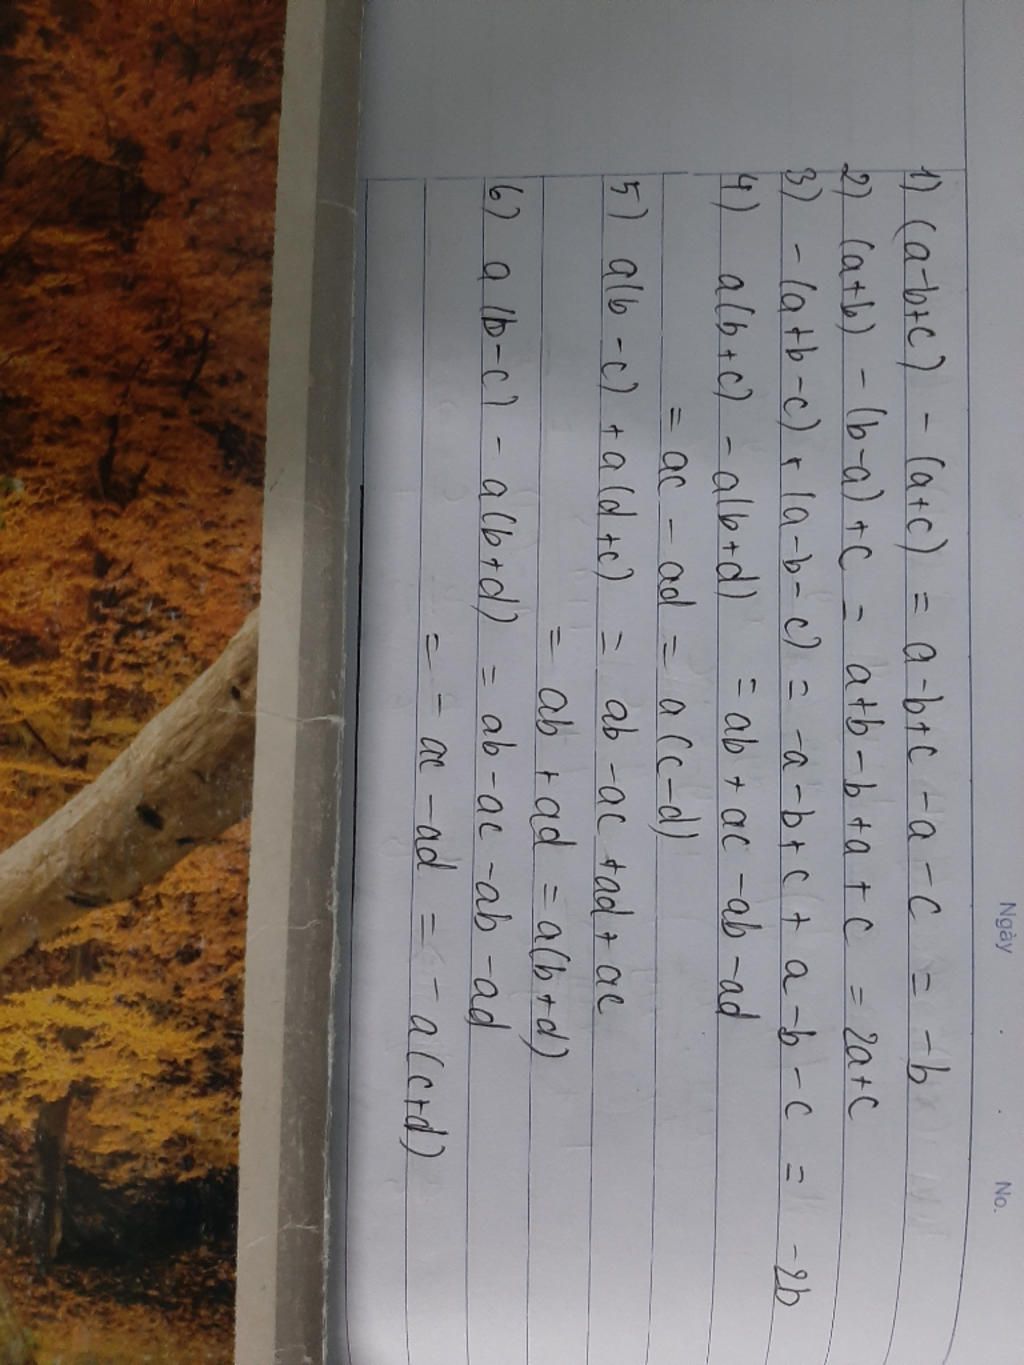 Ngày No.
1) (a-b+c) - (a+c) = a-b+c-a-c = -b
2) (a+b) - (b-a)+c = a+b-b+a+c = 2a+c
3) -(a+b-c)+(a-b-c) = -a-b+c+a-b-c = -2b
4) a(b+c) - a(b+d) = ab+ac-ab-ad
= ac-ad = a(c-d)
5) a(b-c)+a(d+c) = ab-ac+ad+ac
= ab+ad = a(b+d)
6) a(b-c) - a(b+d) = ab-ac-ab-ad
= -ac-ad = -a(c+d)